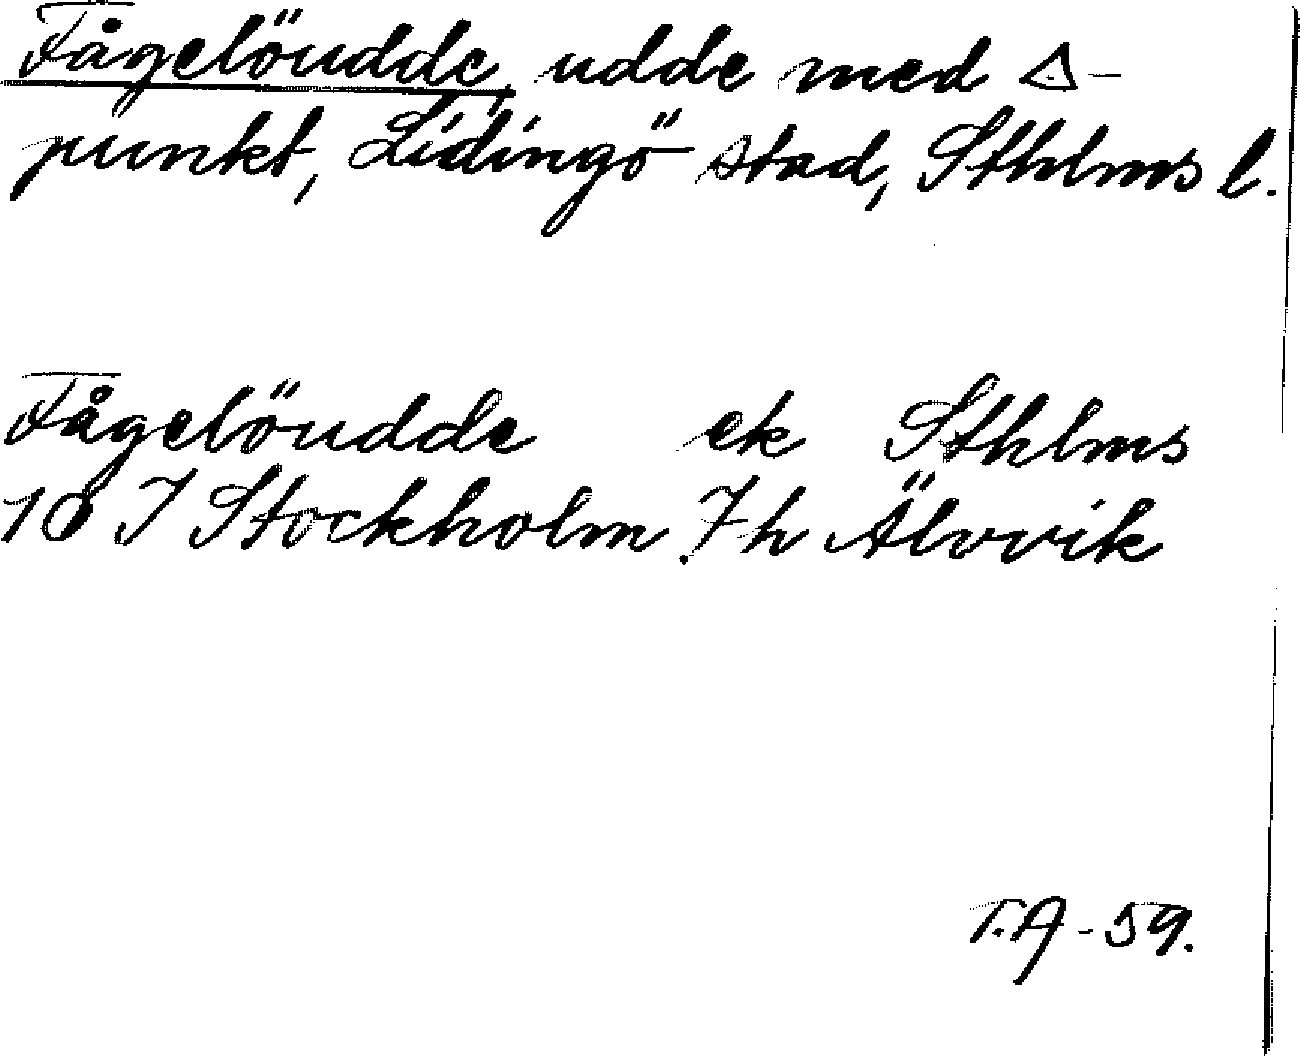 Fågelöudde, udde med △-
punkt, Lidingö stad, Sthlms l.
Fågelöudde ek Sthlms
10 I Stockholm 7h Älvvik
T.A-59.